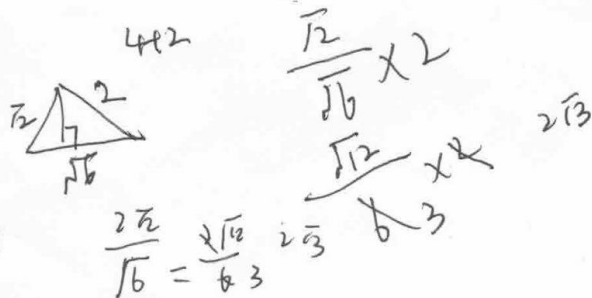 4+2
√2/√6 × 2
√2
2
√6
√12/6 × 2
3
2√3
2√2/√6 = 2√12/6
3
2√3